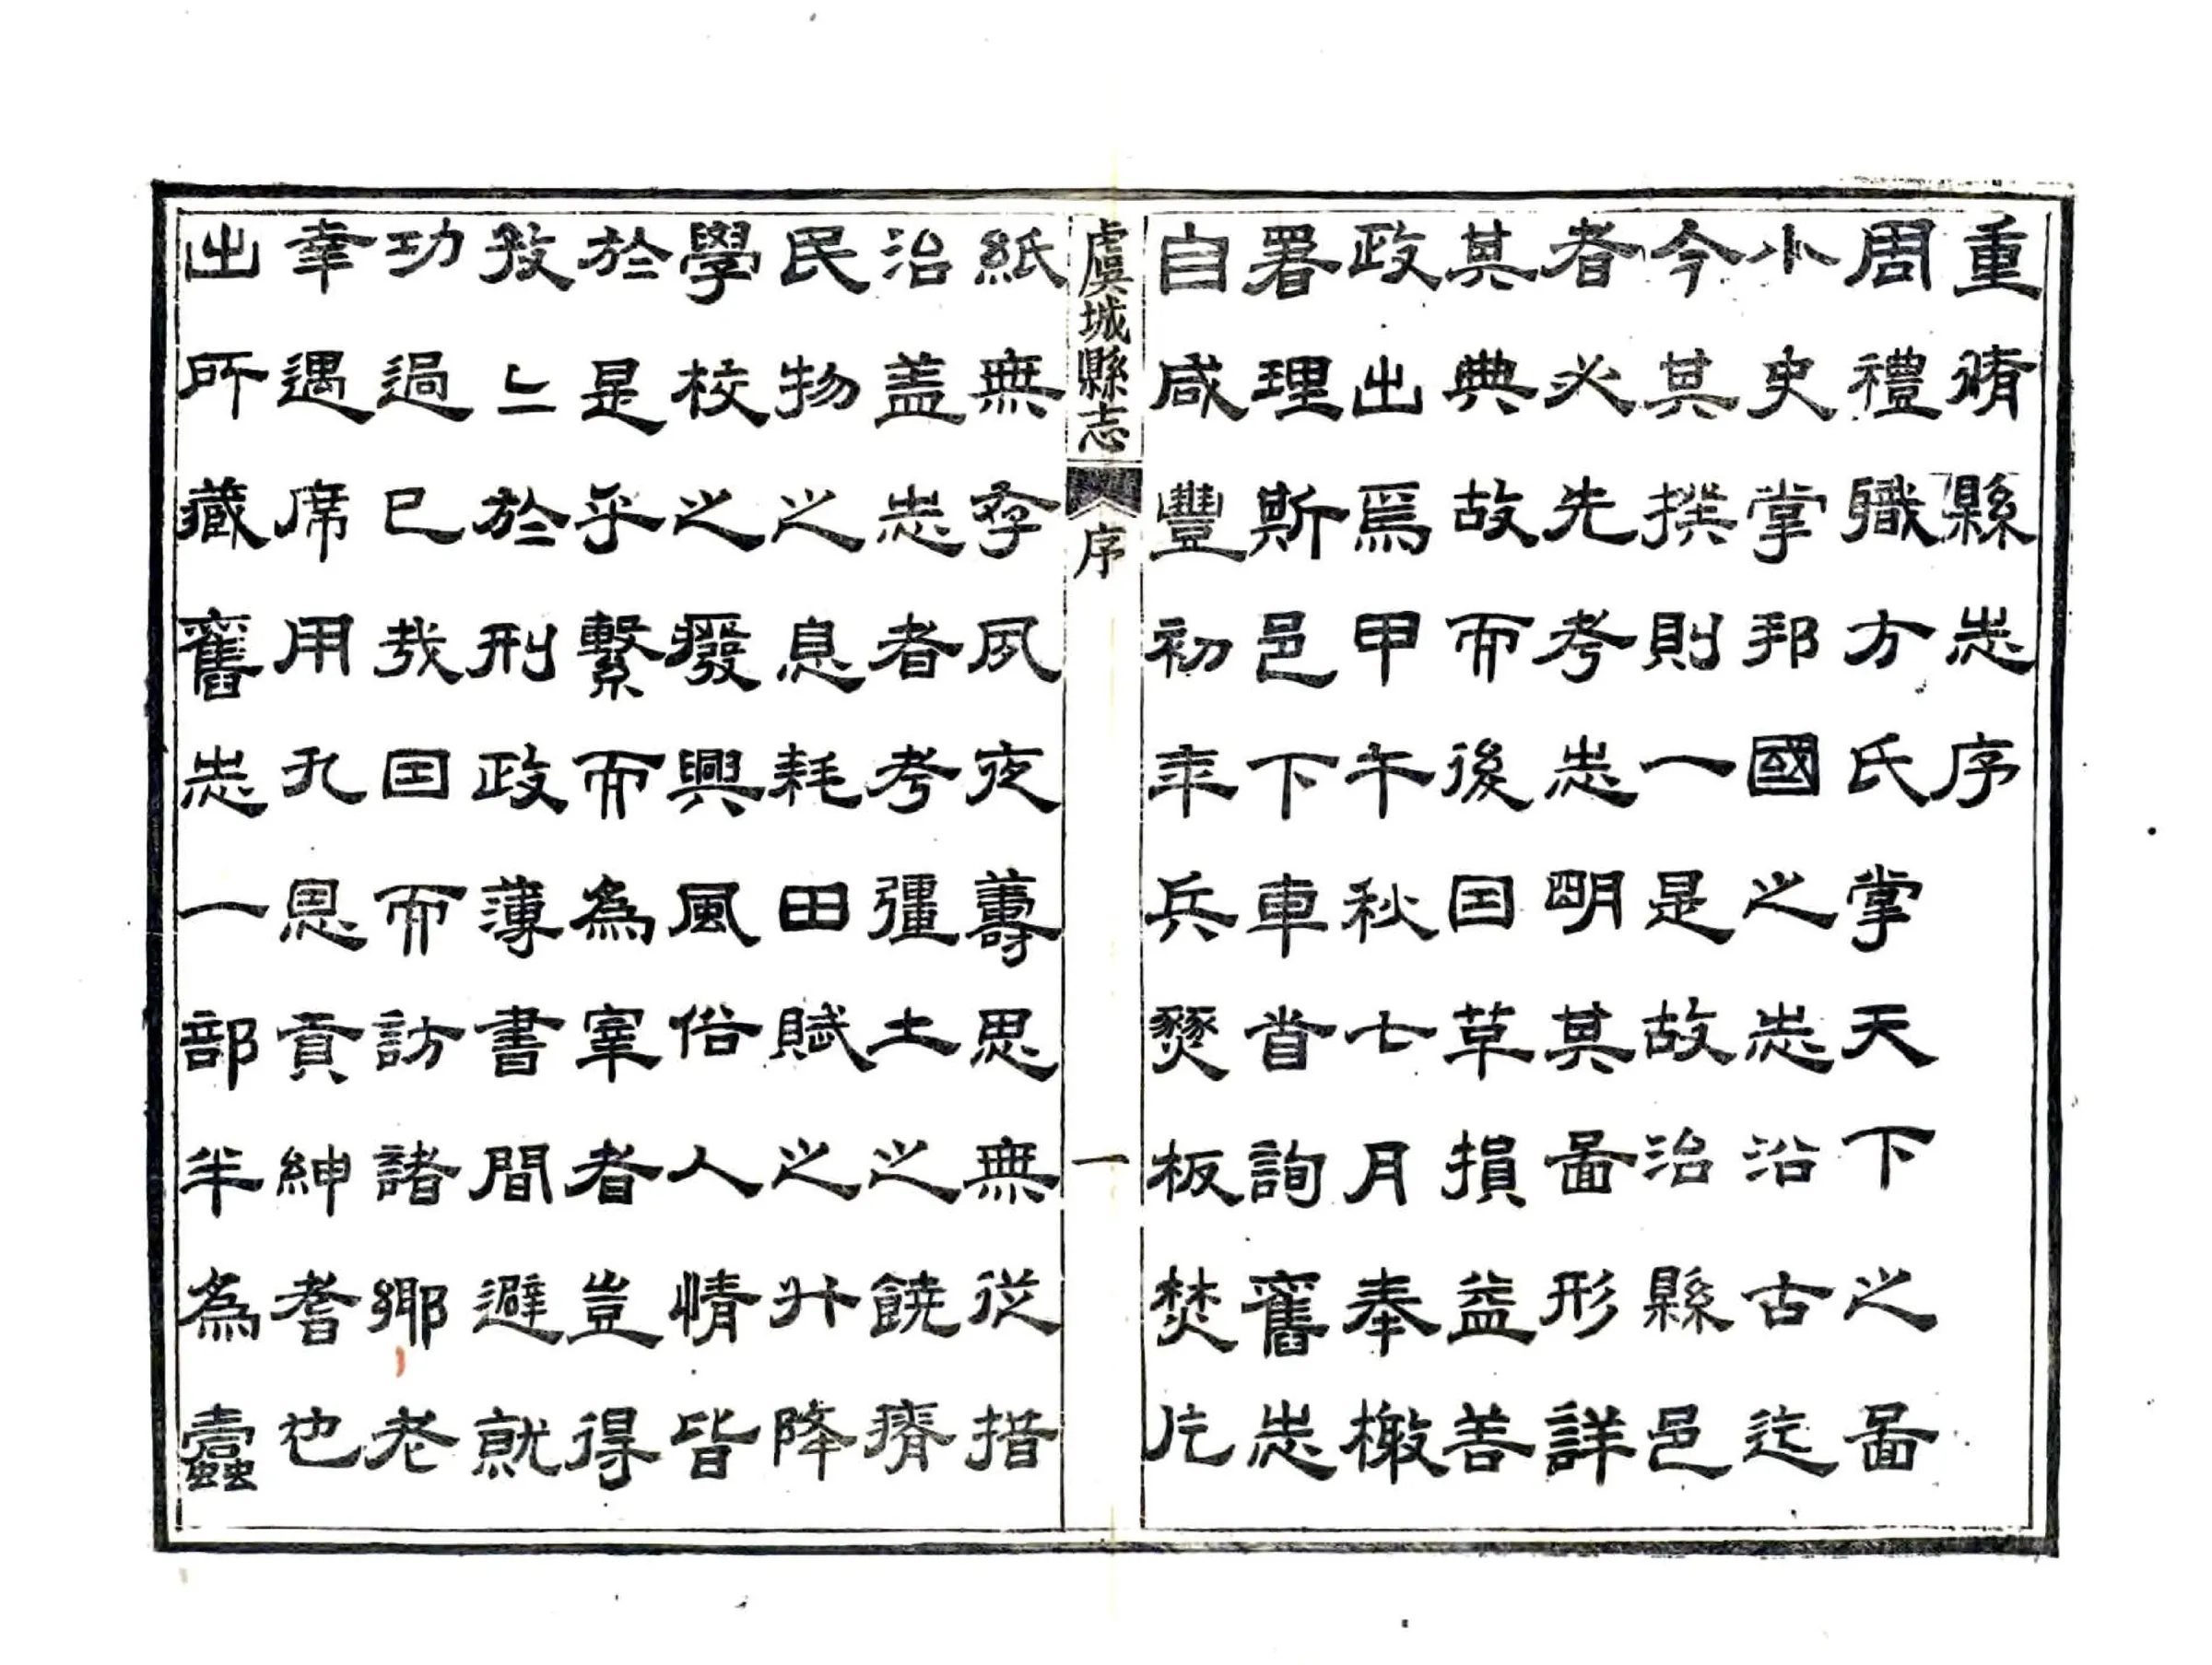 重脩縣志序
周禮職方氏掌天下之圖
小史掌邦國之志沿古迄
今其撰則一是故治縣邑
者必先考志明其圖形詳
其典故而後因革損益善
政出焉甲午秋七月奉檄
署理斯邑下車首詢舊志
自咸豐初年兵燹板焚片
虞城縣志
序
一
紙無存夙夜籌思無從措
治蓋志者考疆土之饒瘠
民物之息耗田賦之升降
學校之廢興風俗人情皆
於是乎繫而為宰者豈得
孜〻於刑政薄書間避就
功過已哉因而訪諸鄉老
幸遇席用九恩貢紳耆也
出所藏舊志一部半為蠹